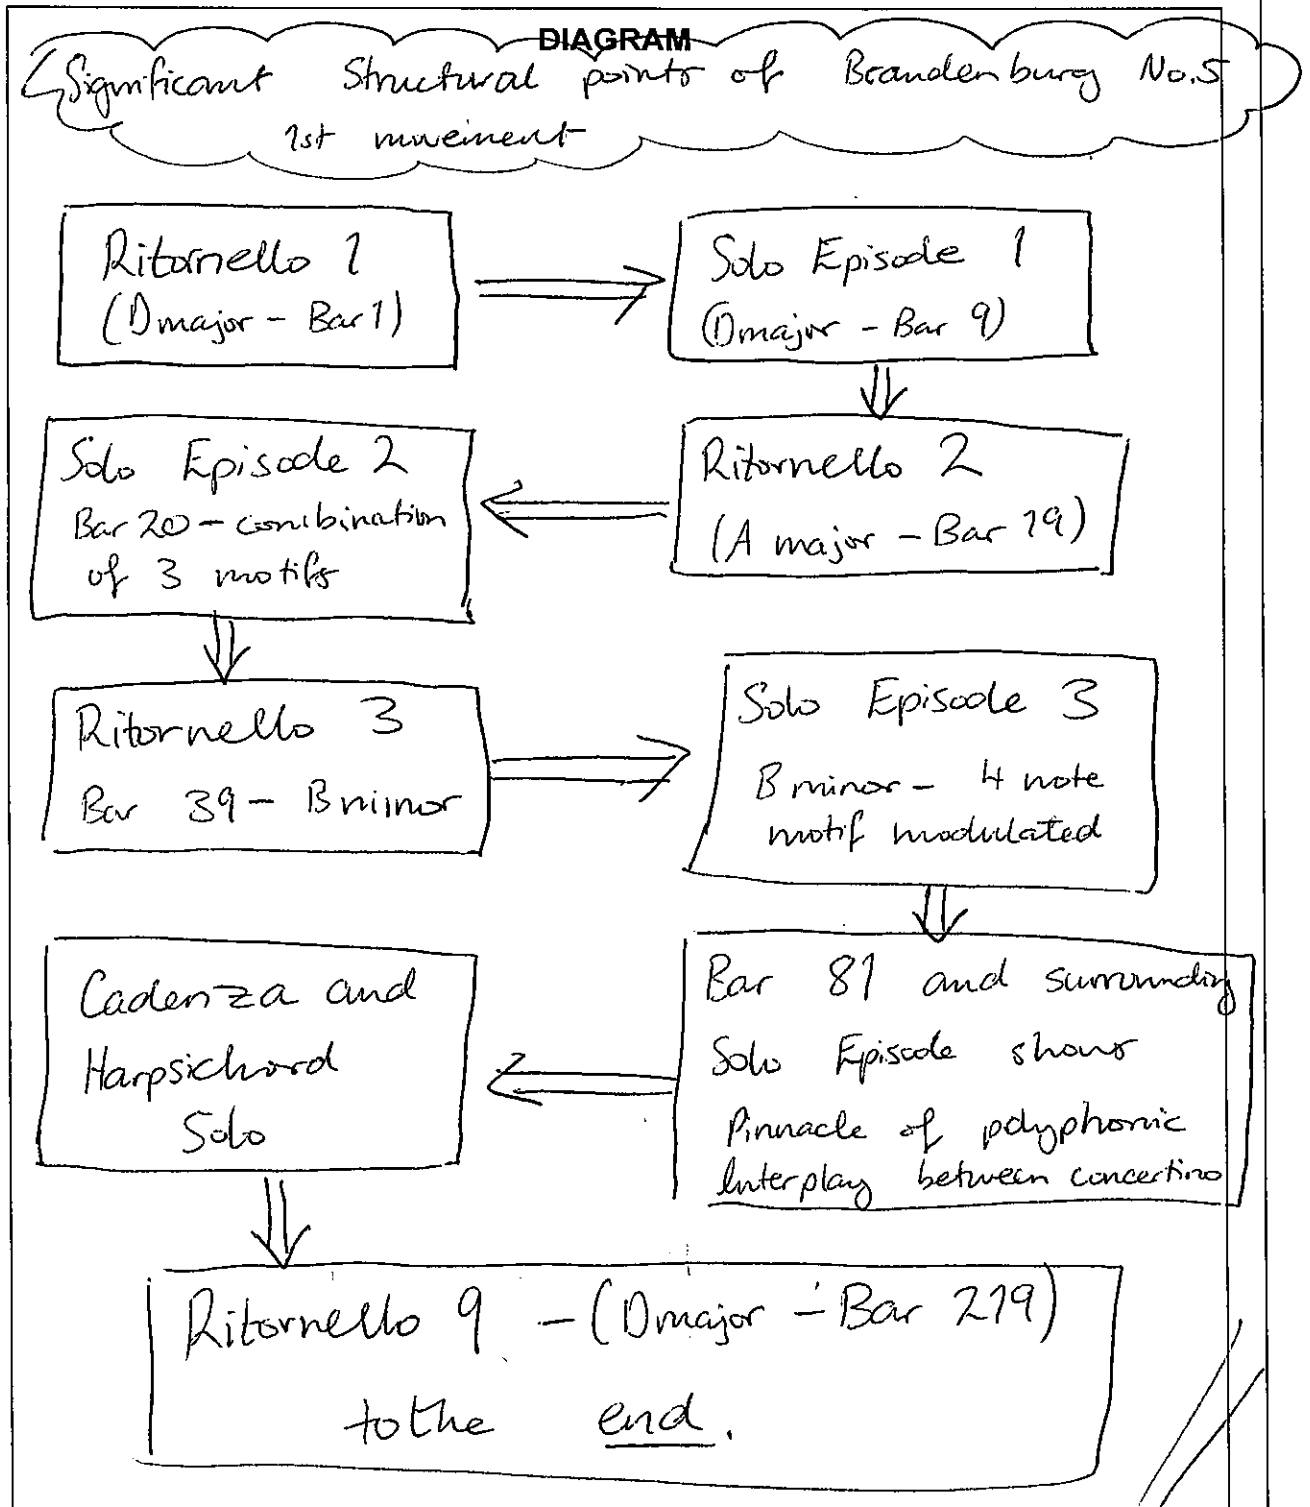 DIAGRAM
Significant Structural points of Brandenburg No.5
1st movement
Ritornello 1
(D major - Bar 1)
Solo Episode 1
(D major - Bar 9)
Ritornello 2
(A major - Bar 19)
Solo Episode 2
Bar 20 - combination
of 3 motifs
Ritornello 3
Bar 39 - B minor
Solo Episode 3
B minor - 4 note
motif modulated
Bar 81 and surrounding
Solo Episode shows
Pinnacle of polyphonic
Interplay between concertino
Cadenza and
Harpsichord
Solo
Ritornello 9 - (D major - Bar 219)
to the end.